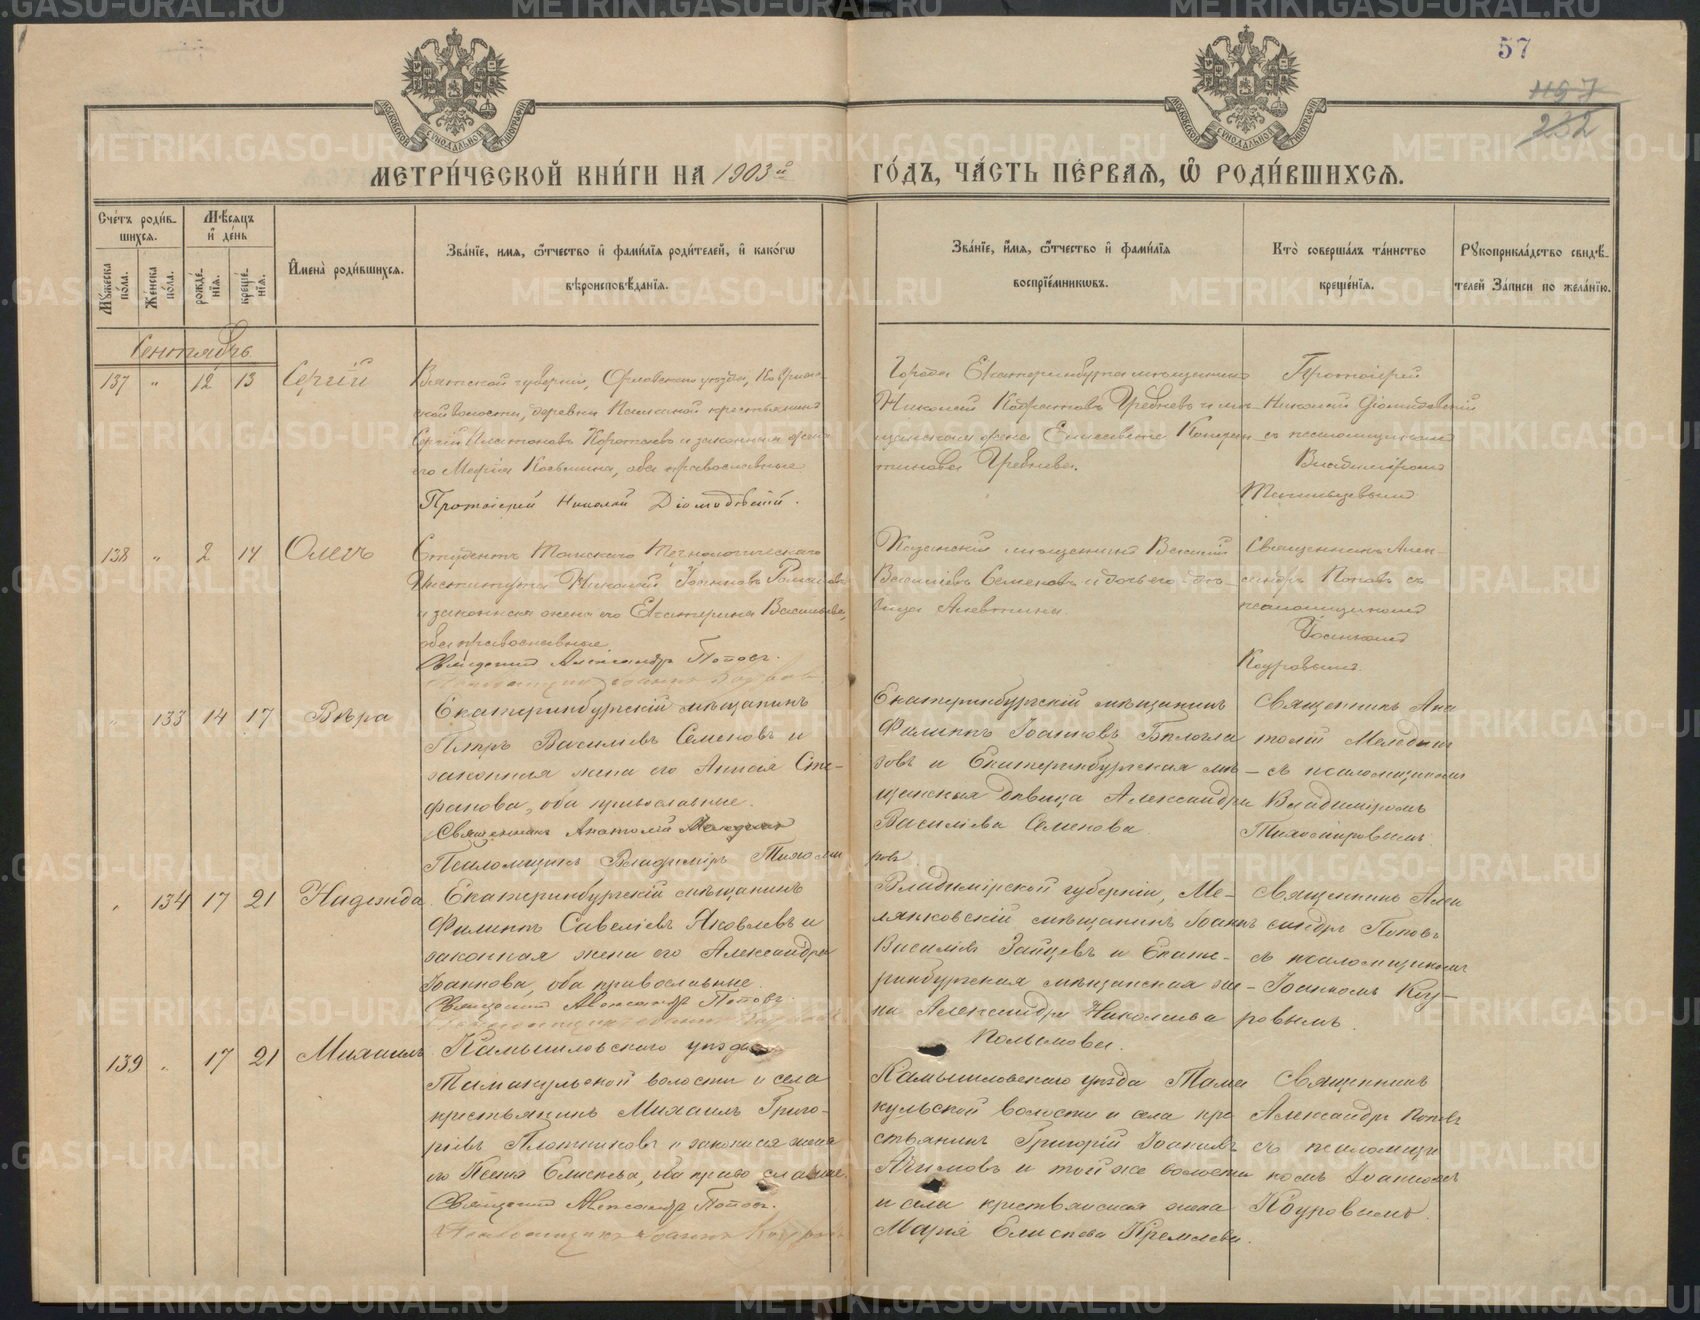 57
1157
232
МЕТРИ́ЧЕСКОЙ КНИ́ГИ НА 1903й ГО́ДЪ, ЧА́СТЬ ПЕ́РВАЯ, Ѿ РОДИ́ВШИХСЯ.
Сче́тъ роди́вшихся.
Мѣсяцъ и҆ де́нь
Мꙋжеска по́ла.
Же́нска по́ла.
рожде́нїя.
креще́нїя.
И҆мена̀ роди́вшихся.
Зва́нїе, имя, ѻтчество и҆ фамилїя роди́телей, и҆ како́гѡ
вѣроисповѣданїя.
Зва́нїе, и҆мя, ѻтчество и҆ фами́лїя
воспрїе́мникѡвъ.
Кто̀ соверша́лъ та́инство
креще́нїя.
Рꙋкоприкла́дство свидѣ-
телей За́писи по жела́нїю.
Сентябрь
137 " 12 13 Сергій
Вятской губерніи, Орловскаго уѣзда,
волости, деревни крестьянинъ
Сергій Платоновъ Коротаевъ и законная жена
его Марія Козьмина, оба православные
Протоіерей Николай Діомидовскій.
Города Екатеринбурга мѣщанинъ
Николай Гребневъ и мѣ-
щанская жена Елисавета
Гребнева.
Протоіерей
Николай Діомидовскій
съ псаломщикомъ
Владиміромъ
138 " 2 14 Олегъ
Студентъ Томскаго Технологическаго
Института Николай Іоанновъ
и законная жена его Екатерина Васильева,
оба православные.
Священникъ Александръ Поповъ.
Казанскій мѣщанинъ Василій
Васильевъ Семеновъ и дочь его дѣ-
вица Алевтина
Священникъ Алек-
сандръ Поповъ съ
псаломщикомъ
Іоанномъ
Коуровымъ.
" 133 14 17 Вѣра
Екатеринбургскій мѣщанинъ
Петръ Василіевъ Семеновъ и
законная жена его Анисія Сте-
фанова, оба православные.
Священникъ Анатолій
Псаломщикъ Владиміръ Тихоміровъ
Екатеринбургскій мѣщанинъ
Филиппъ Іоанновъ Бѣлогла
зовъ и Екатеринбургская мѣ-
щанская дѣвица Александра
Василіева Семенова.
Священникъ Ана
толій
съ псаломщикомъ
Владиміромъ
Тихоміровымъ.
" 134 17 21 Надежда
Екатеринбургскій мѣщанинъ
Филиппъ Савеліевъ Яковлевъ и
законная жена его Александра
Іоаннова, оба православные.
Священникъ Александръ Поповъ.
Владимірской губерніи, Ме-
ленковскій мѣщанинъ Іоаннъ
Василіевъ Зайцевъ и Екате-
ринбургская мѣщанская же-
на Александра Николаева
Полымова.
Священникъ Алек
сандръ Поповъ
съ псаломщикомъ
Іоанномъ Коу-
ровымъ.
139 " 17 21 Михаилъ
Камышловскаго уѣзда
Тамакульской волости и села
крестьянинъ Михаилъ Григо-
ріевъ Плотниковъ и законная жена
его Ксенія Елисѣева, оба православные.
Священникъ Александръ Поповъ.
Псаломщикъ Іоаннъ Коуровъ
Камышловскаго уѣзда Тама
кульской волости и села кре
стьянинъ Григорій Іоакимовъ
Акимовъ и той же волости
и села крестьянская жена
Марія Елисѣева Кремлева.
Священникъ
Александръ Поповъ
съ псаломщи
комъ Іоанномъ
Коуровымъ.
METRIKI.GASO-URAL.RU